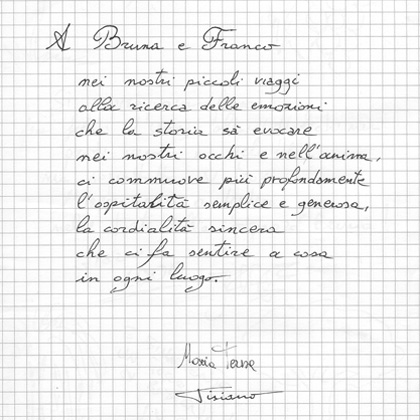 A Bruna e Franco
nei nostri piccoli viaggi
alla ricerca delle emozioni
che la storia sà evocare
nei nostri occhi e nell'anima,
ci commuove più profondamente
l'ospitalità semplice e generosa,
la cordialità sincera
che ci fa sentire a casa
in ogni luogo.
Maria
Tiziano